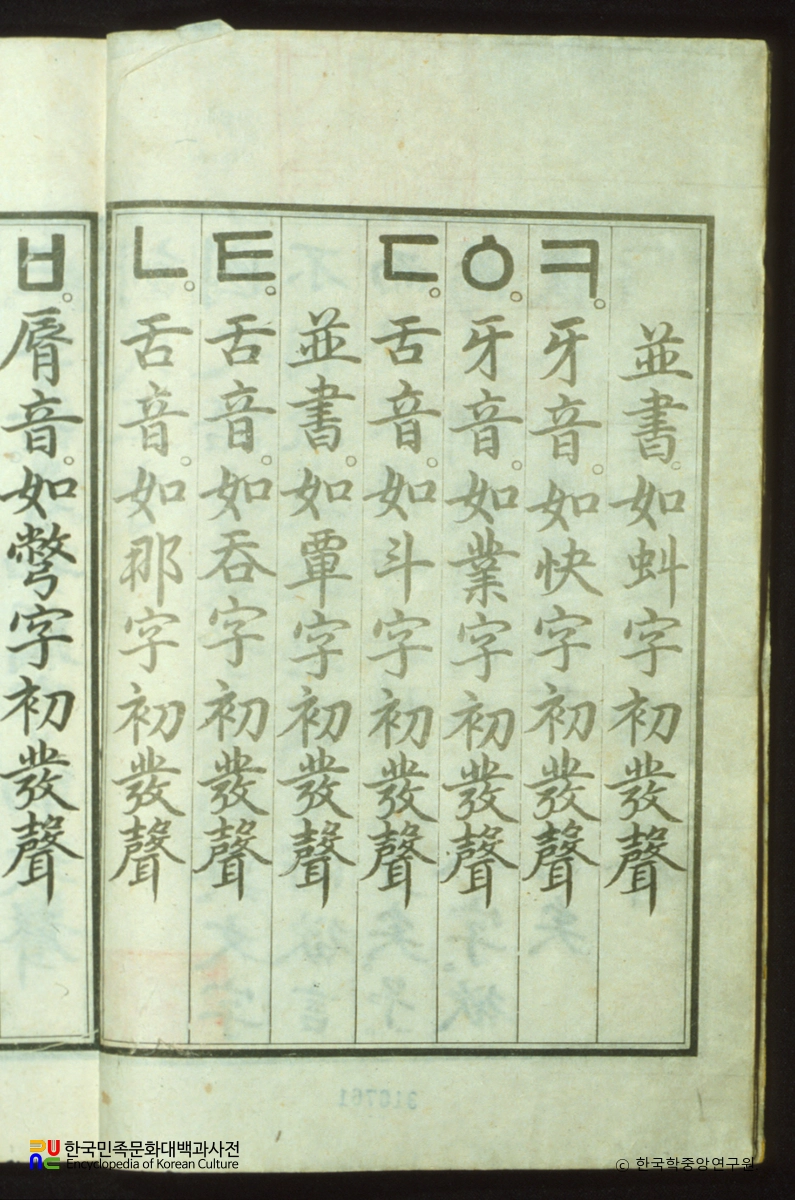 並書。如虯字初發聲
ㅋ。牙音。如快字初發聲
ㆁ。牙音。如業字初發聲
ㄷ。舌音。如斗字初發聲
並書。如覃字初發聲
ㅌ。舌音。如呑字初發聲
ㄴ。舌音。如那字初發聲
ㅂ。脣音。如彆字初發聲
한국민족문화대백과사전
Encyclopedia of Korean Culture
© 한국학중앙연구원